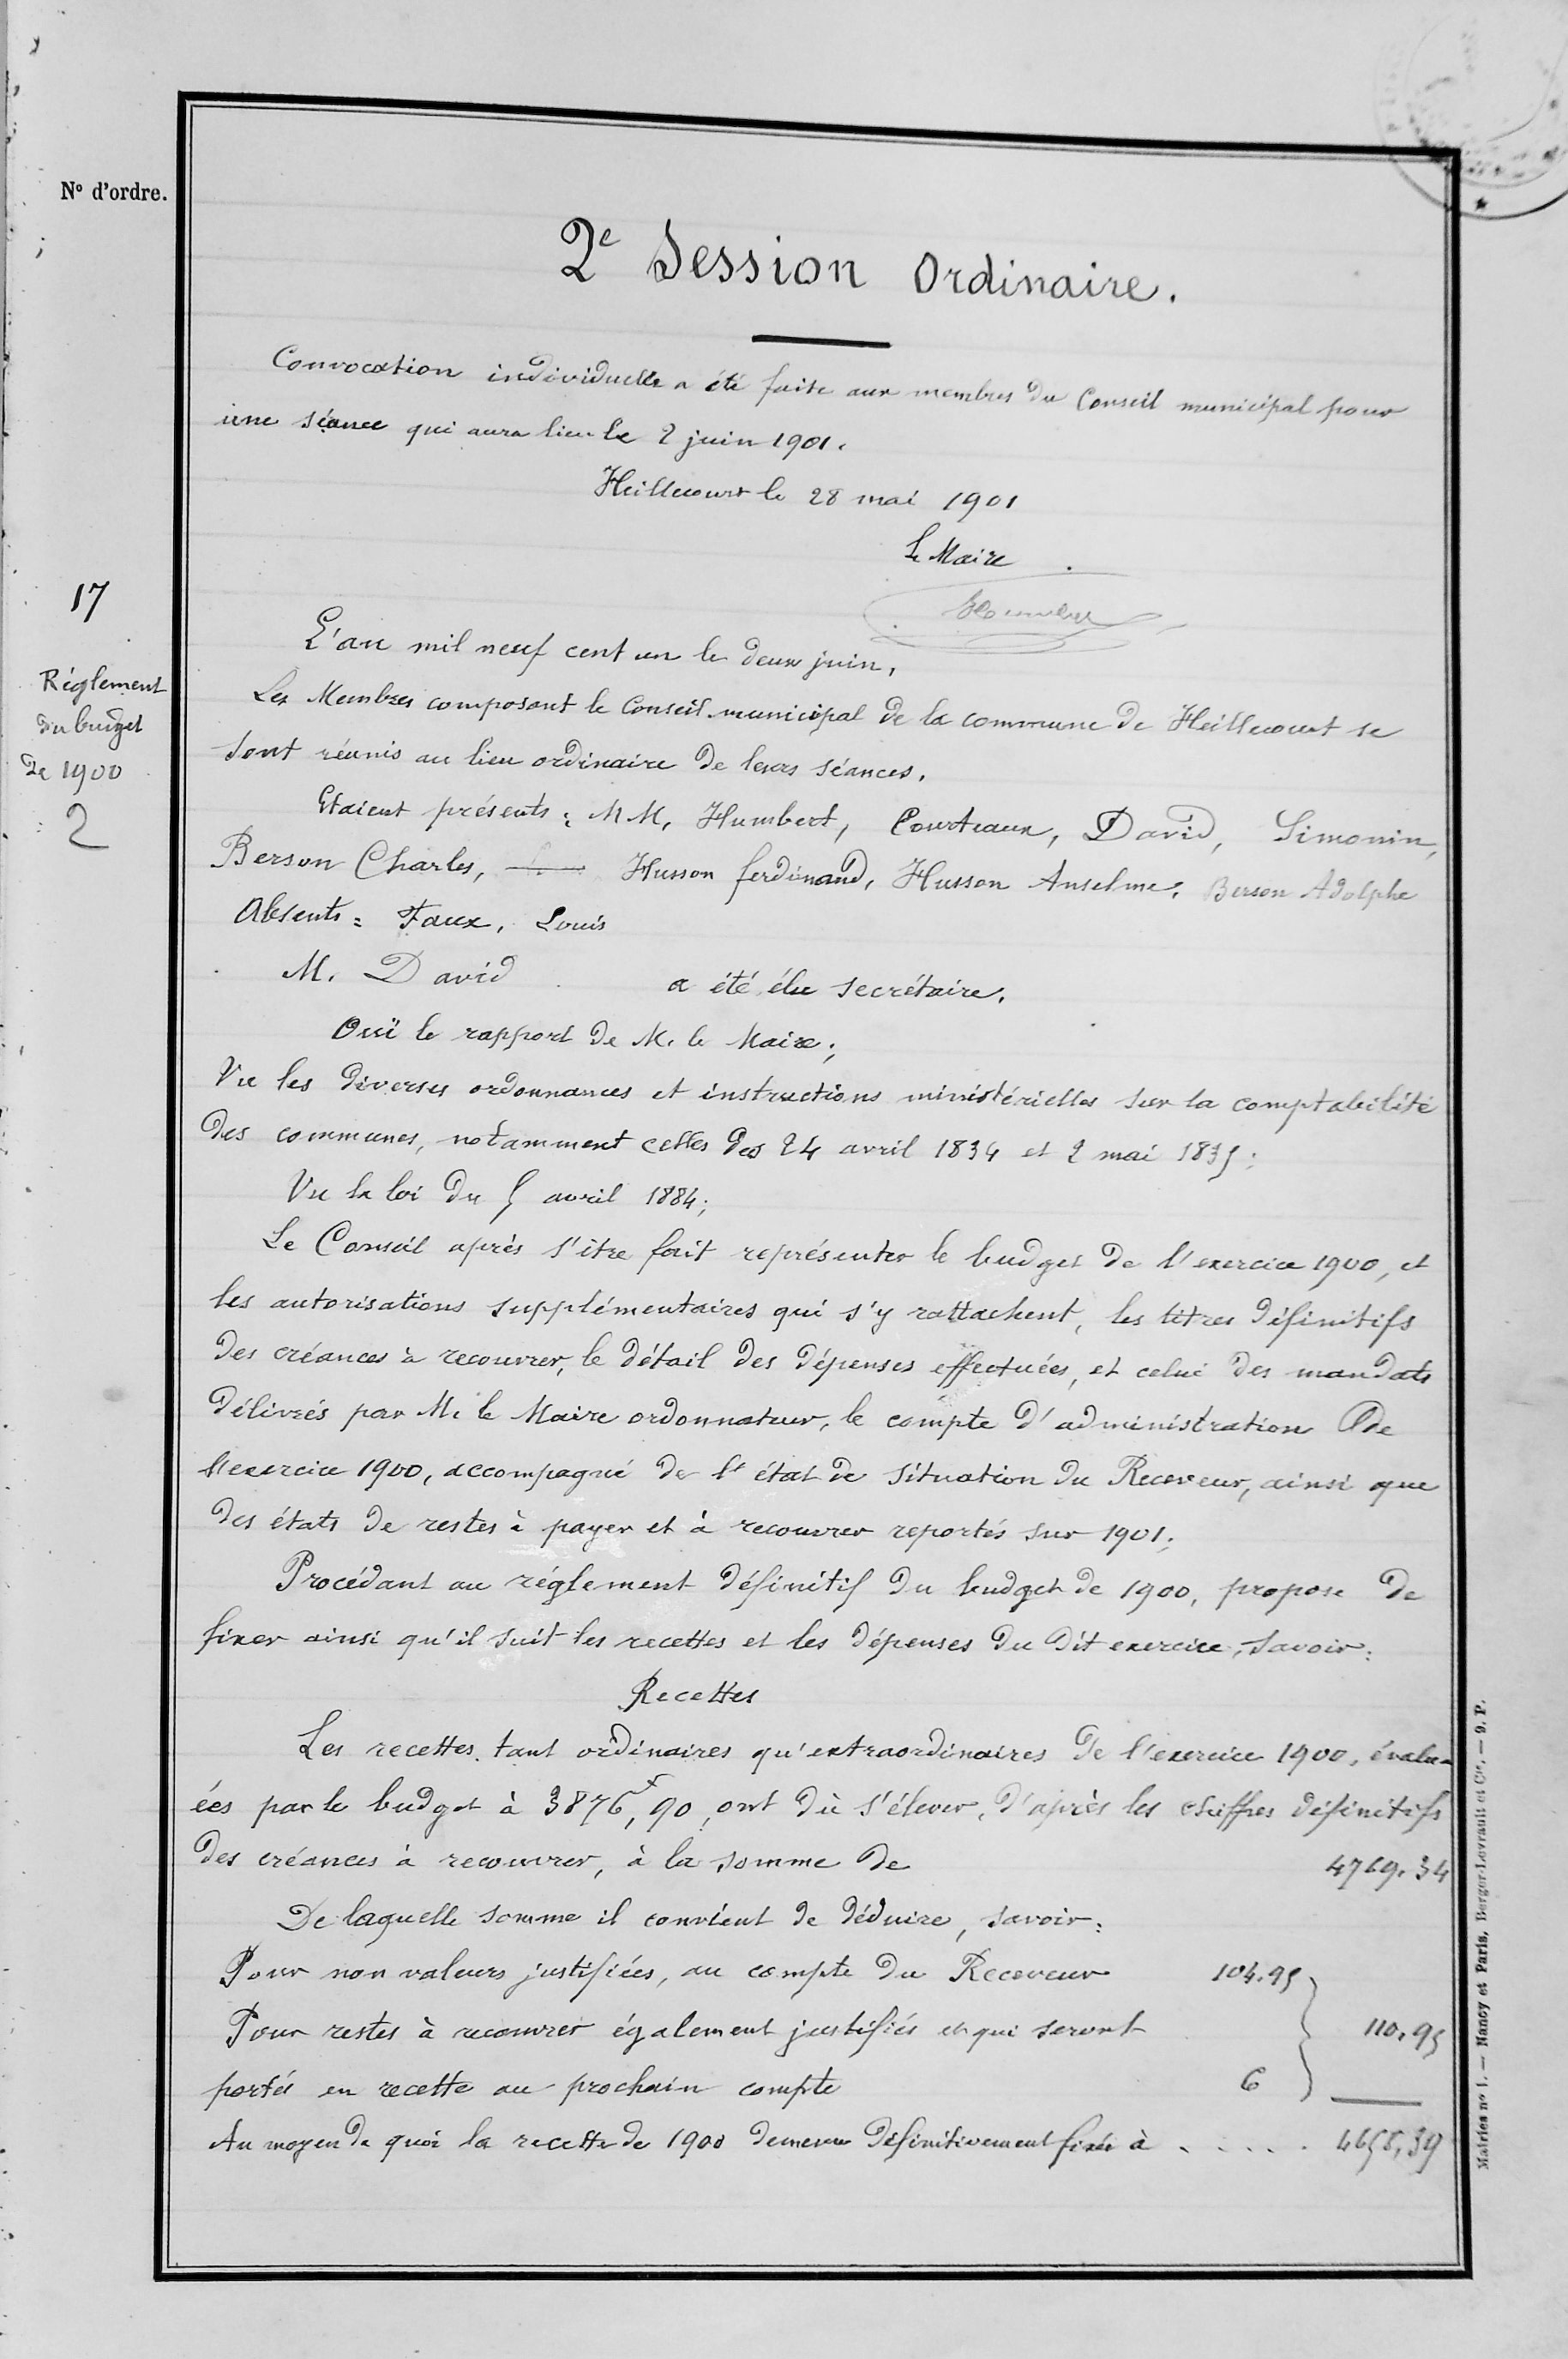 N° d'ordre.
2e Session Ordinaire.
Convocation individuelle a été faite aux membres du Conseil municipal pour
une séance qui aura lieu le 2 juin 1901.
Heillecourt le 28 mai 1901
Le Maire
Humbert
17
Réglement
du budget
de 1900
2
L'an mil neuf cent un le deux juin,
Les Membres composant le Conseil municipal de la commune de Heillecourt se
sont réunis au lieu ordinaire de leurs séances.
Etaient présents : MM. Humbert, Courteaux, David, Simonin,
Berson Charles, Husson ferdinand, Husson Anselme, Berson Adolphe
Absents : Faux, Louis
M. David a été élu secrétaire.
Ouï le rapport de M. le Maire ;
Vu les diverses ordonnances et instructions ministérielles sur la comptabilité
des communes, notamment celles des 24 avril 1834 et 2 mai 1835 ;
Vu la loi du 5 avril 1884 ;
Le Conseil après s'être fait représenter le budget de l'exercice 1900, et
les autorisations supplémentaires qui s'y rattachent, les titres définitifs
des créances à recouvrer, le détail des dépenses effectuées, et celui des mandats
délivrés par M. le Maire ordonnateur, le compte d'administration de
l'exercice 1900, accompagné de l'état de situation du Receveur, ainsi que
des états de restes à payer et à recouvrer reportés sur 1901 ;
Procédant au réglement définitif du budget de 1900, propose de
fixer ainsi qu'il suit les recettes et les dépenses du dit exercice, savoir :
Recettes
Les recettes tant ordinaires qu'extraordinaires de l'exercice 1900, évalu-
ées par le budget à 3876f,90, ont dû s'élever, d'après les chiffres définitifs
des créances à recouvrer, à la somme de 4769.34
De laquelle somme il convient de déduire, savoir :
Pour non valeurs justifiées, au compte du Receveur 104.95
Pour restes à recouvrer également justifiés et qui seront 110.95
portés en recette au prochain compte 6
Au moyen de quoi la recette de 1900 demeure définitivement fixée à ..... 4658,39
Mairies no 1. — Nancy et Paris, Berger-Levrault et Cie. — 9. P.